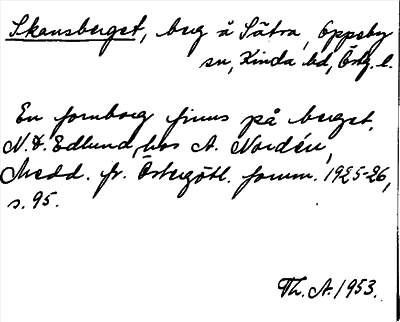 Skansberget, berg å Sätra, Oppeby
sn, Kinda hd, Östg. l.
En fornborg finns på berget,
N.D. Edlund, hos A. Nordén,
Medd. fr. Östergötl. fornm. 1925-26,
s. 95.
Th. A. 1953.